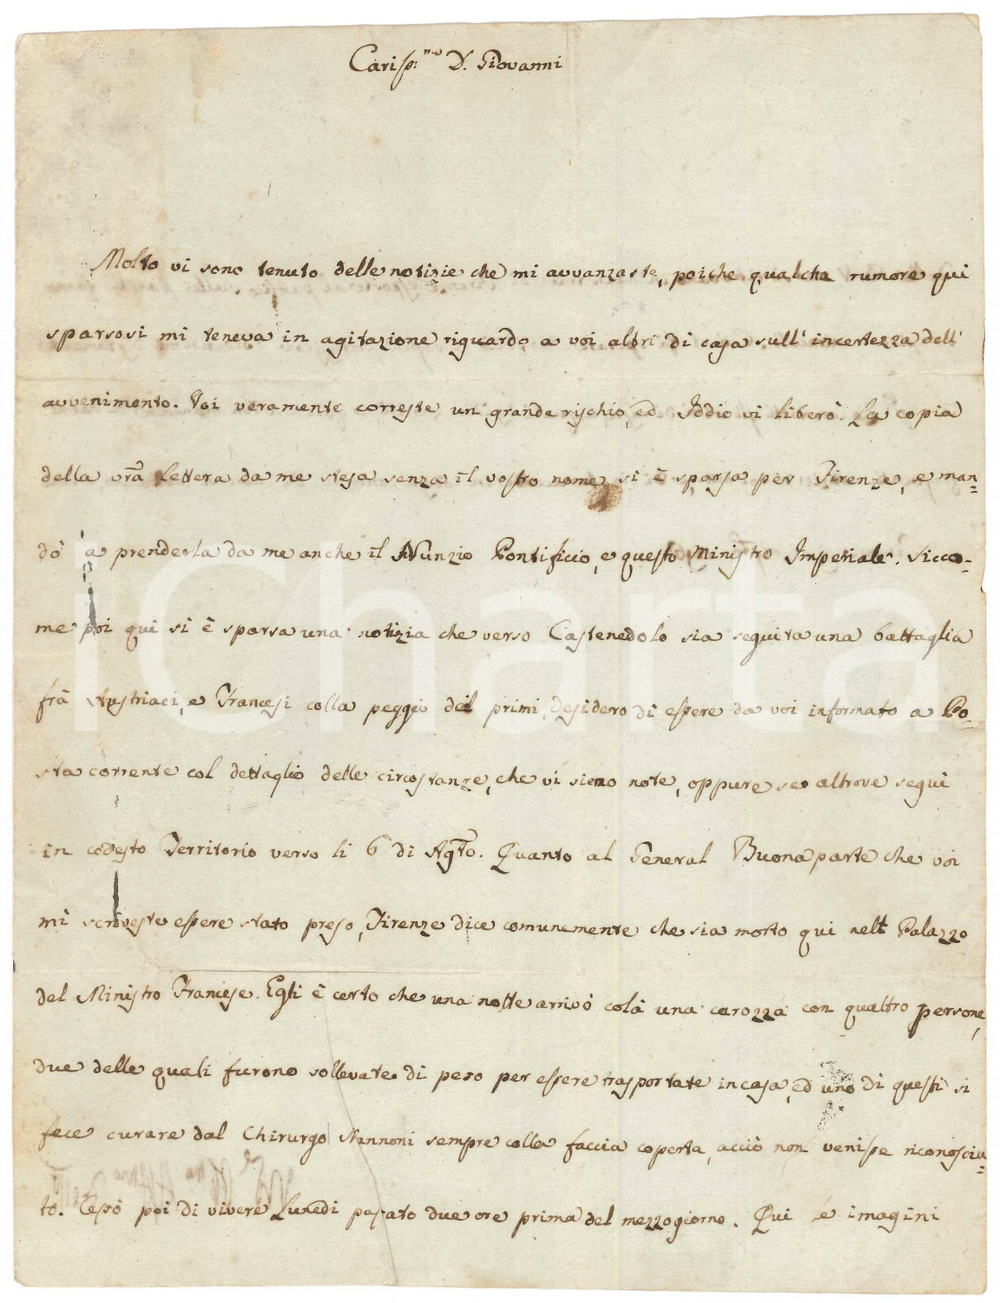 Cariss.mo D. Giovanni
Molto vi sono tenuto delle notizie che mi avvanzaste, poiche qualche rumore qui
sparsosi mi teneva in agitazione riguardo a voi altri di casa sull' incertezza dell'
avvenimento. Voi veramente correste un grande rischio, ed Iddio vi liberò. La copia
della vrã Lettera da me stesa senza il vostro nome si è sparsa per Firenze, e man=
dò a prenderla da me anche il Nunzio Pontificio, e questo Ministro Imperiale. Sicco=
me poi qui si è sparsa una notizia che verso Castenedolo sia seguita una battaglia
frà Austriaci, e Francesi colla peggio dei primi, desidero di essere da voi informato a Po=
sta corrente col dettaglio delle circostanze, che vi sieno note, oppure se altrove seguì
in codesto Territorio verso li 6 di Agto. Quanto al General Buonaparte che voi
mi scriveste essere stato preso, Firenze dice comunemente che sia morto qui nel Palazzo
del Ministro Francese. Egli è certo che una notte arrivò colà una carozza con quattro persone,
due delle quali furono sollevate di peso per essere trasportate in casa, ed uno di questi si
fece curare dal Chirurgo Nannoni sempre colla faccia coperta, acciò non venisse riconosciu=
to. Cessò poi di vivere Lunedi passato due ore prima del mezzogiorno. Qui è imagini
iCharta